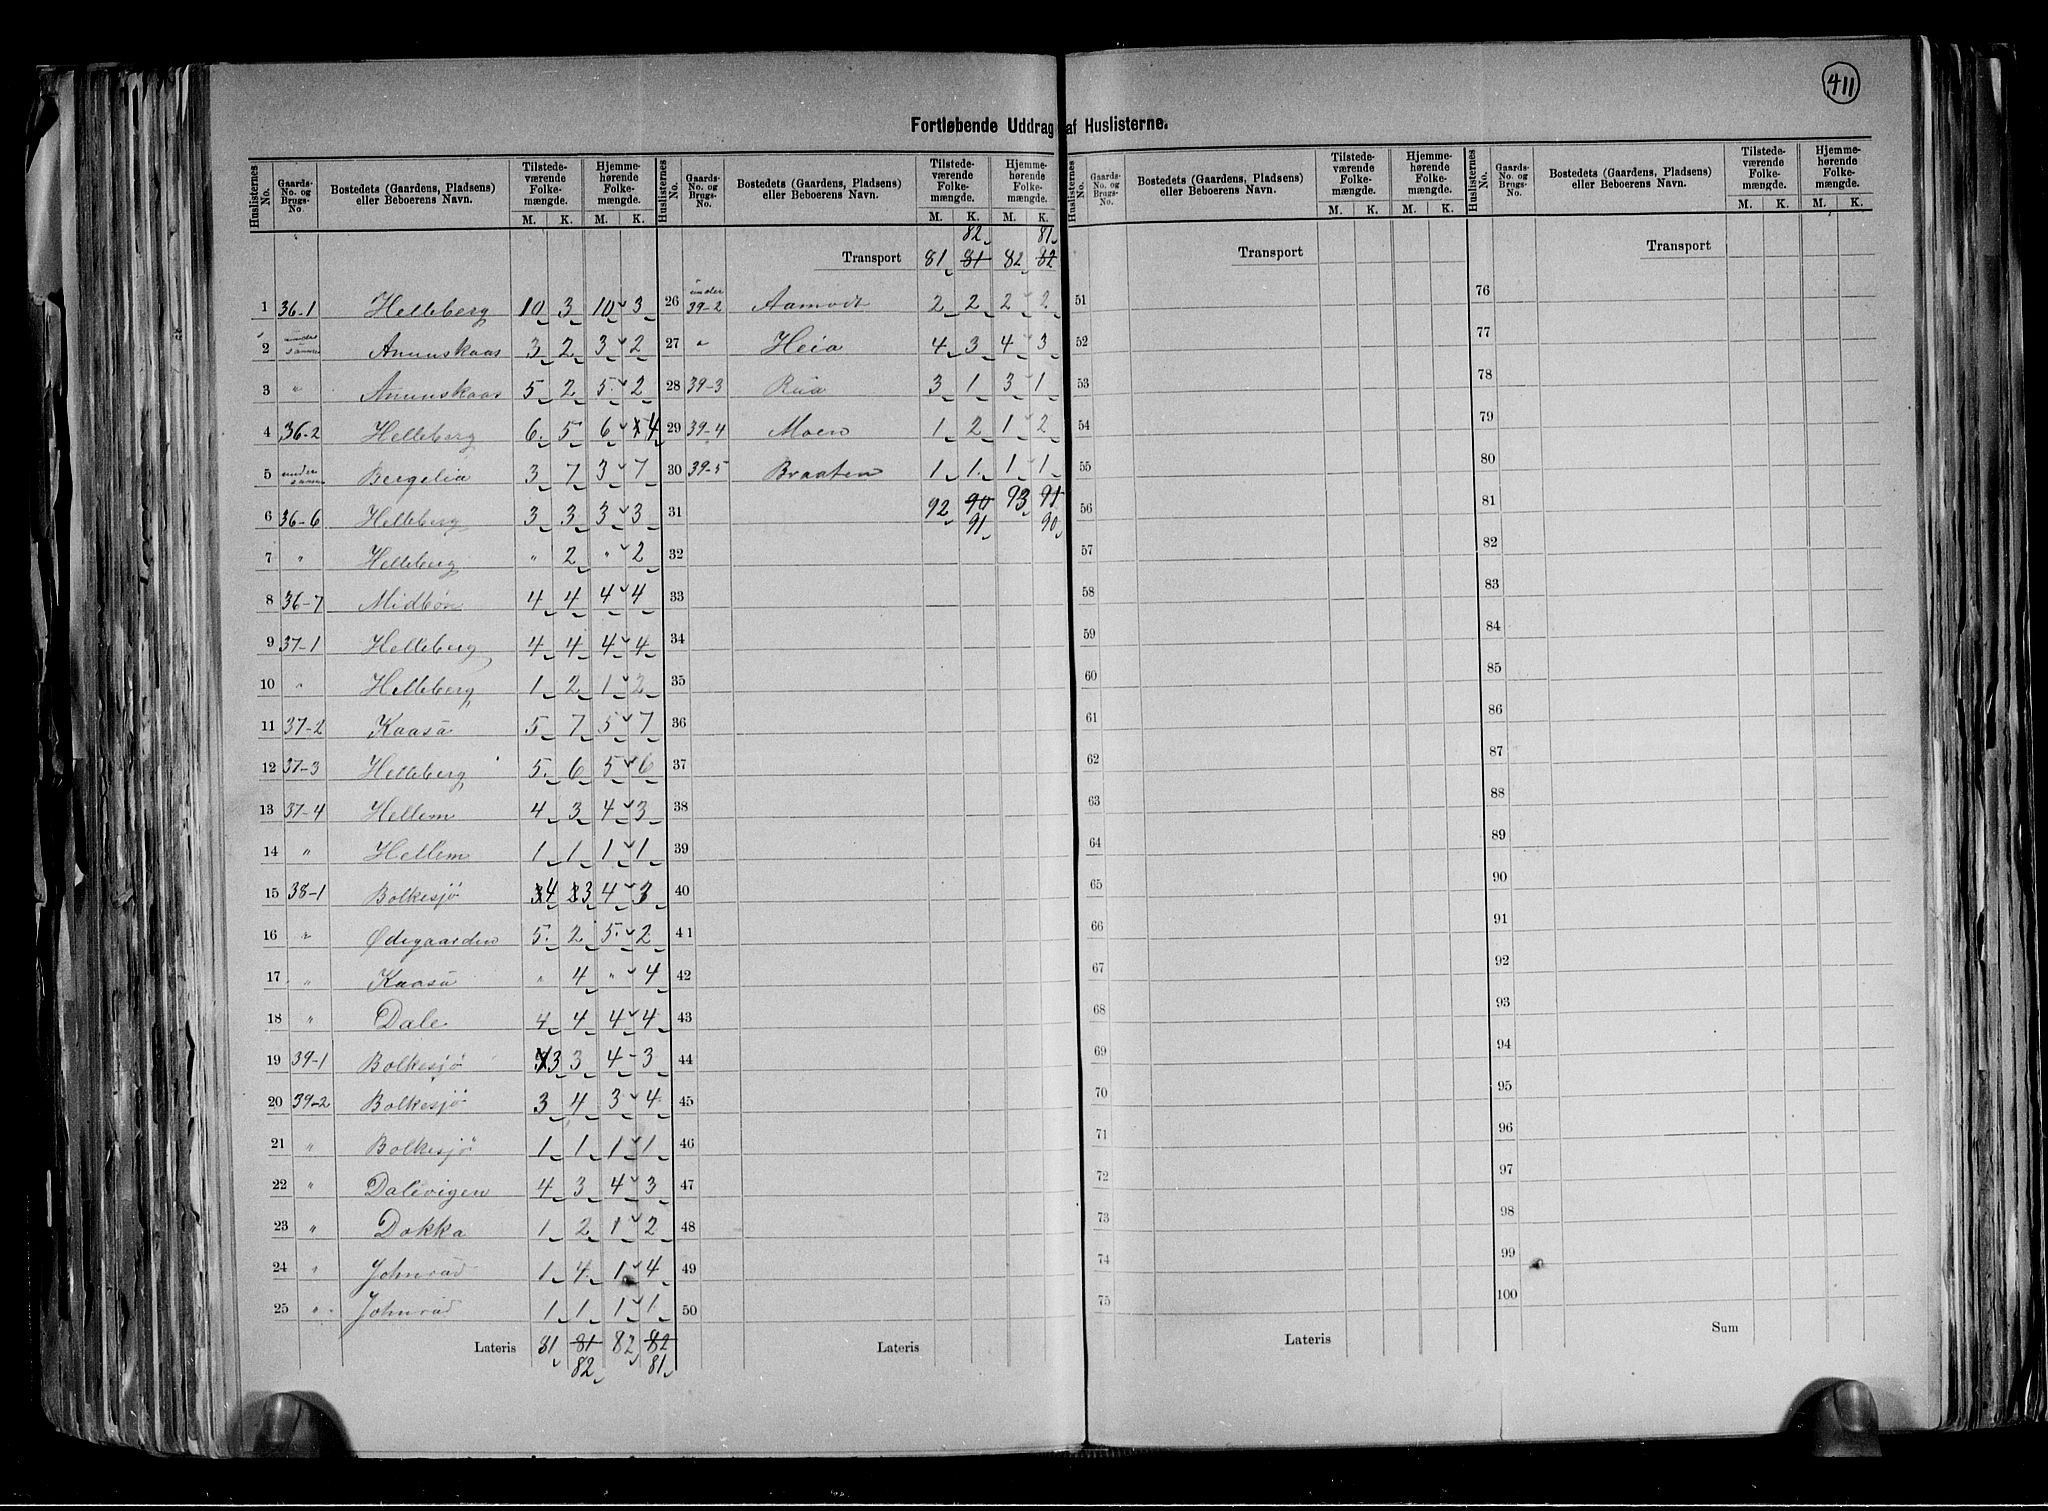 411
Fortløbende Uddrag af Huslisterne.
Huslisternes No. Gaards-No. og Brugs-No. Bostedets (Gaardens, Pladsens) eller Beboerens Navn. Tilstedeværende Folkemængde. M. K. Hjemmehørende Folkemængde. M. K.
1 36-1 Helleberg 10 3 10 3
2 under samme Anunskaas 3 2 3 2
3 " Anunskaas 5 2 5 2
4 36-2 Helleberg 6 5 6 4
5 under samme Bergelia 3 7 3 7
6 36-6 Helleberg 3 3 3 3
7 " Helleberg " 2 " 2
8 36-7 Midbøn 4 4 4 4
9 37-1 Helleberg 4 4 4 4
10 " Helleberg 1 2 1 2
11 37-2 Kaasa 5 7 5 7
12 37-3 Helleberg 5 6 5 6
13 37-4 Hellem 4 3 4 3
14 " Hellem 1 1 1 1
15 38-1 Bolkesjö 4 3 4 3
16 " Ødegaarden 5 2 5 2
17 " Kaasa " 4 " 4
18 " Dale 4 4 4 4
19 39-1 Bolkesjö 3 3 4 3
20 39-2 Bolkesjö 3 4 3 4
21 " Bolkesjö 1 1 1 1
22 " Dalevigen 4 3 4 3
23 " Dokka 1 2 1 2
24 " Johnrud 1 4 1 4
25 " Johnrud 1 1 1 1
Lateris 81 81 82 82
82 81
Huslisternes No. Gaards-No. og Brugs-No. Bostedets (Gaardens, Pladsens) eller Beboerens Navn. Tilstedeværende Folkemængde. M. K. Hjemmehørende Folkemængde. M. K.
82 81
Transport 81 81 82 82
26 under 39-2 Aamodt 2 2 2 2
27 " Heia 4 3 4 3
28 39-3 Rua 3 1 3 1
29 39-4 Moen 1 2 1 2
30 39-5 Braaten 1 1 1 1
31 92 90 93 91
91 90
32
33
34
35
36
37
38
39
40
41
42
43
44
45
46
47
48
49
50
Lateris
Huslisternes No. Gaards-No. og Brugs-No. Bostedets (Gaardens, Pladsens) eller Beboerens Navn. Tilstedeværende Folkemængde. M. K. Hjemmehørende Folkemængde. M. K.
Transport
51
52
53
54
55
56
57
58
59
60
61
62
63
64
65
66
67
68
69
70
71
72
73
74
75
Lateris
Huslisternes No. Gaards-No. og Brugs-No. Bostedets (Gaardens, Pladsens) eller Beboerens Navn. Tilstedeværende Folkemængde. M. K. Hjemmehørende Folkemængde. M. K.
Transport
76
77
78
79
80
81
82
83
84
85
86
87
88
89
90
91
92
93
94
95
96
97
98
99
100
Sum